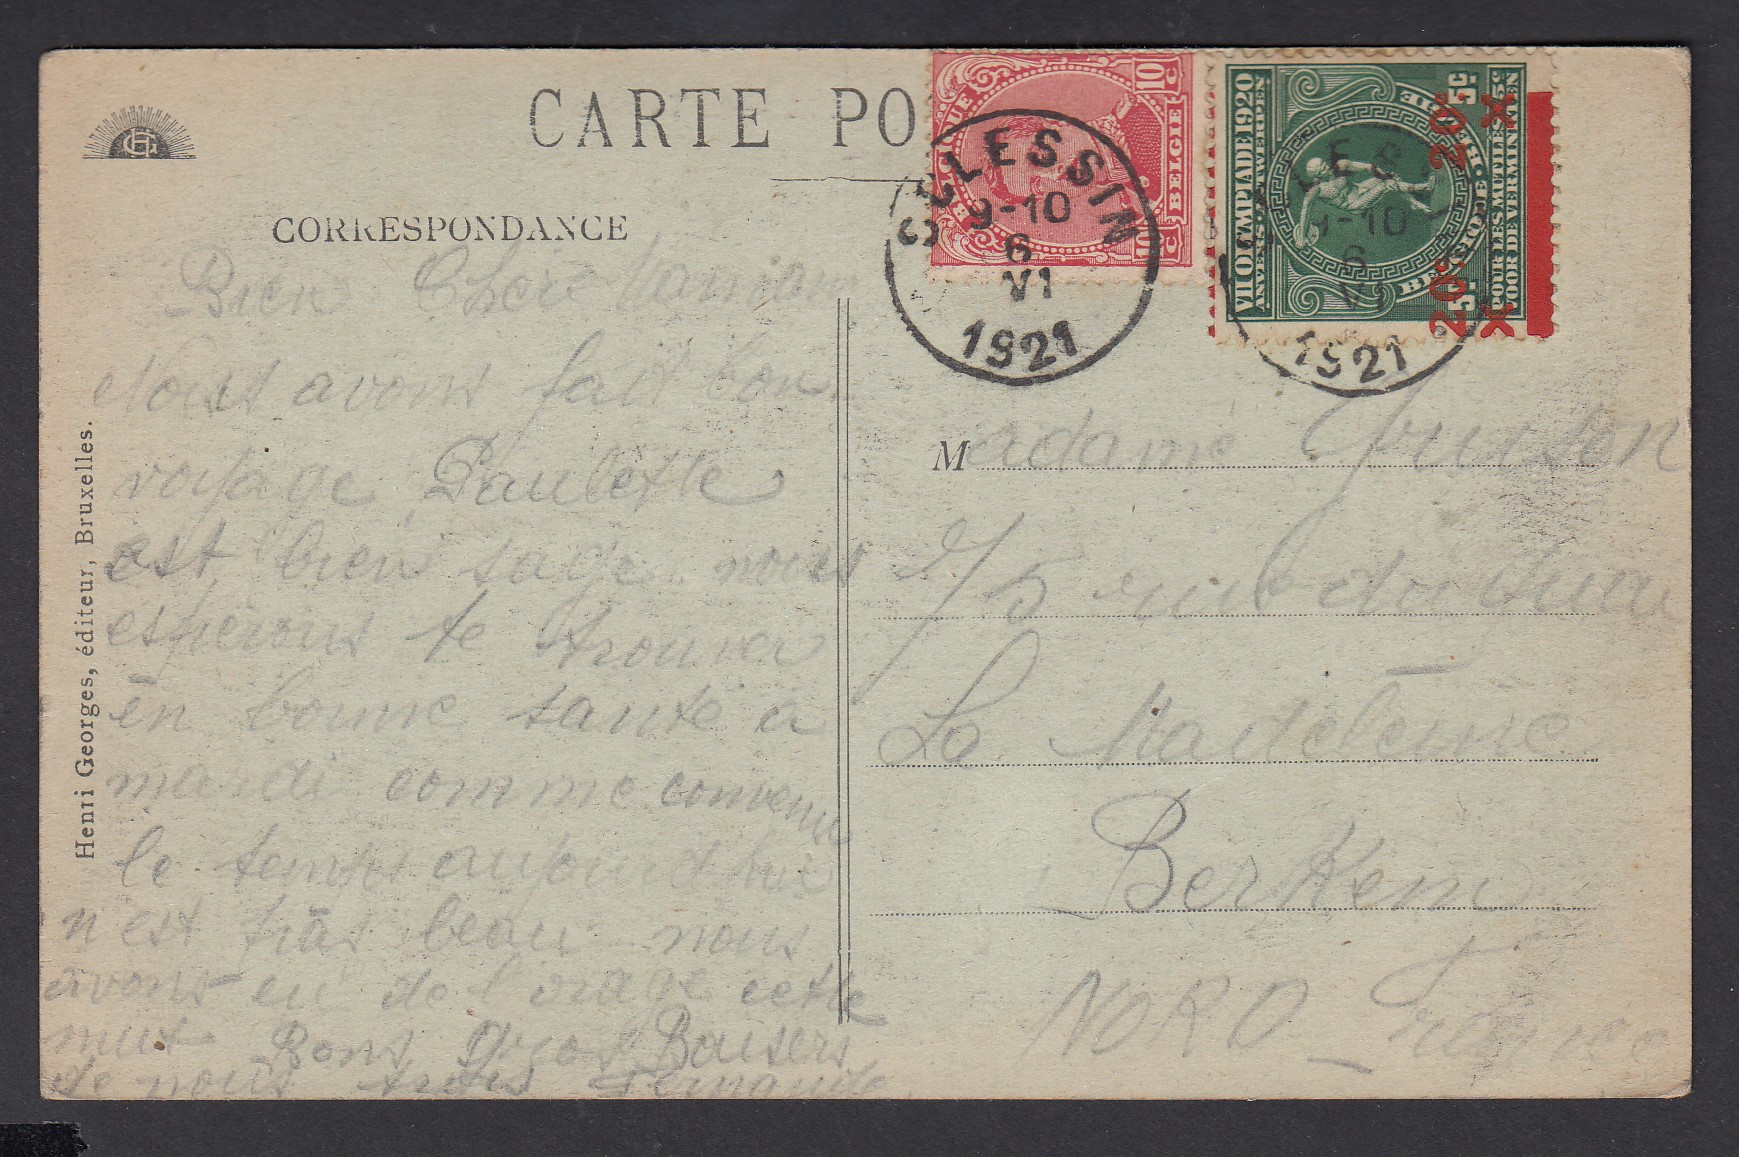 CARTE PO
CORRESPONDANCE
Henri Georges, éditeur, Bruxelles.
Bien Chère Maman
Nous avons fait bon
voyage Paulette
est bien sage nous
espérons te trouver
en bonne santé à
mardi comme convenu
le temps aujourd'hui
n'est pas beau nous
avons eu de l'orage cette
nuit Bons Gros Baisers
de nous trois Fernande
BELGIQUE
10 C
BELGIE
10 C
SCLESSIN
9-10
6
VI
1921
VII OLYMPIADE 1920
ANVERS ANTWERPEN
BELGIQUE BELGIE
5c 5c
POUR LES MUTILES 5c
VOOR DE VERMINKTEN
20c 20c
X X
SCLESSIN
9-10
6
VI
1921
Madame
rue du
La Madeleine
Berkem
NORD France